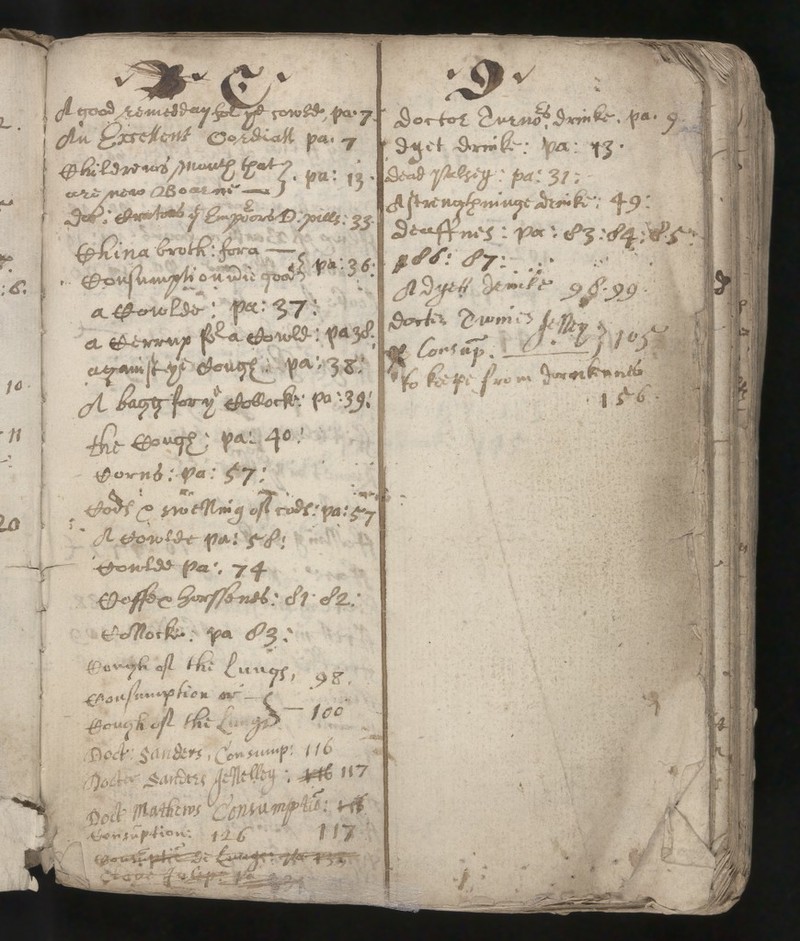 C
A good remedday for ye cowld. pa. 7
An Excellent Cordiall pa. 7
Childrens Mouth that
are new Boarne — } pa: 13
& Empoors D: pills: 33
China broth: for a —
Consumption
pa: 36:
a Cowlde: pa: 37:
a Serrup for a Cowld: pa 38.
against ye Cough: pa: 38:
A bagg for ye Collocke: pa: 39:
the Cough: pa: 40:
Corns: pa: 57:
Cods & swelling of cods: pa: 57
A Cowlde pa: 58:
Cowlde pa: 74
Coffe & horssenes: 81. 82:
Collocke: pa 83:
Cough of the Lungs, 98.
Consumption or —
Cough of the Lungs } — 100
Doct: Sanders, Consump: 116
Docter Sanders Jellelley: 116 117
Doct Mathews Consumptiō: 116
117
Consūption: 126
D
doctor Turnos drinke. pa. 9
dyet drinke: pa: 13.
dead Palsey: pa: 31:
A strenghninge drinke: 49:
deaffnes: pa: 83: 84: 85:
86: 87:
A dyett drinke 98. 99.
docter Twines Jelley
Consūp. } 105
to keepe from drunknnes
156.
2.
:6.
10.
11
20